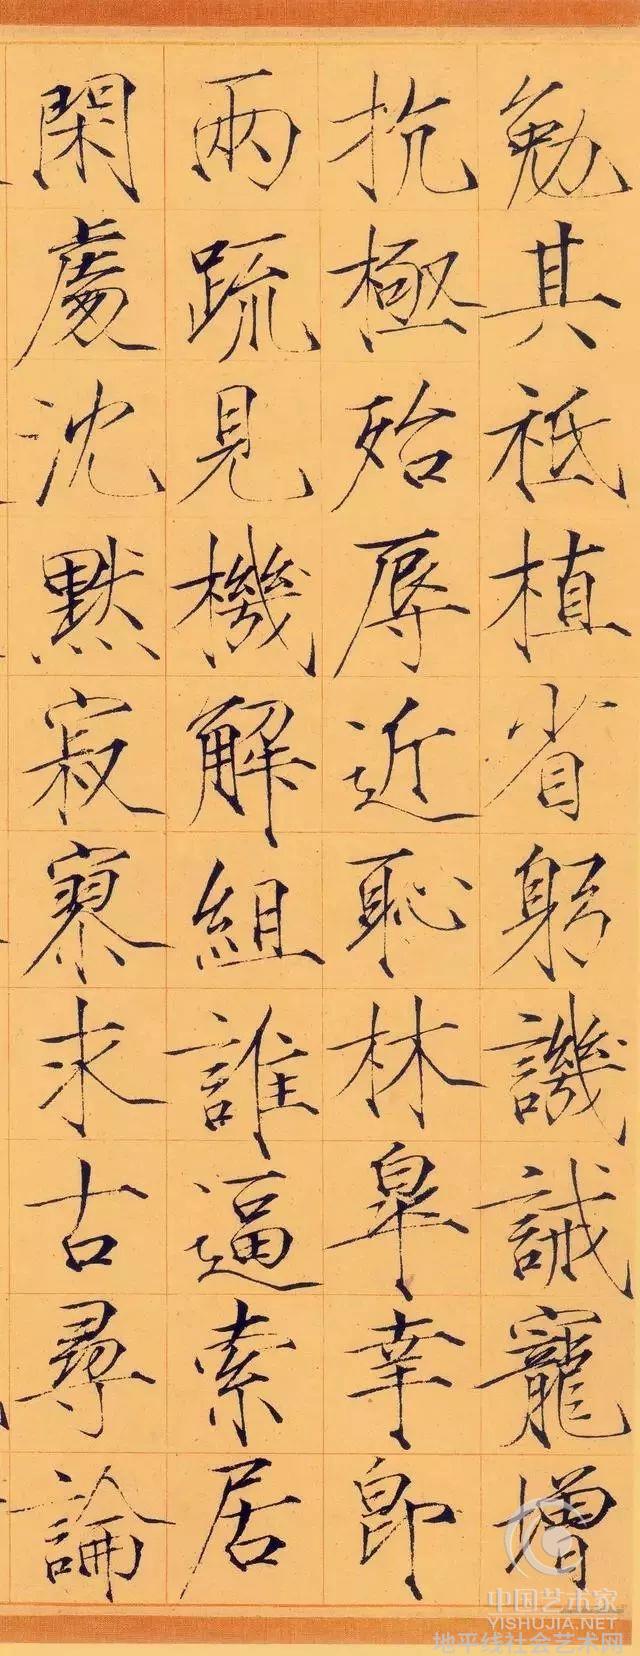 勉其祗植省躬譏誡寵增
抗極殆辱近恥林皐幸即
兩疏見機解組誰逼索居
閑處沈默寂寥求古尋論
中国艺术家
YISHUJIA.NET
地平线社会艺术网